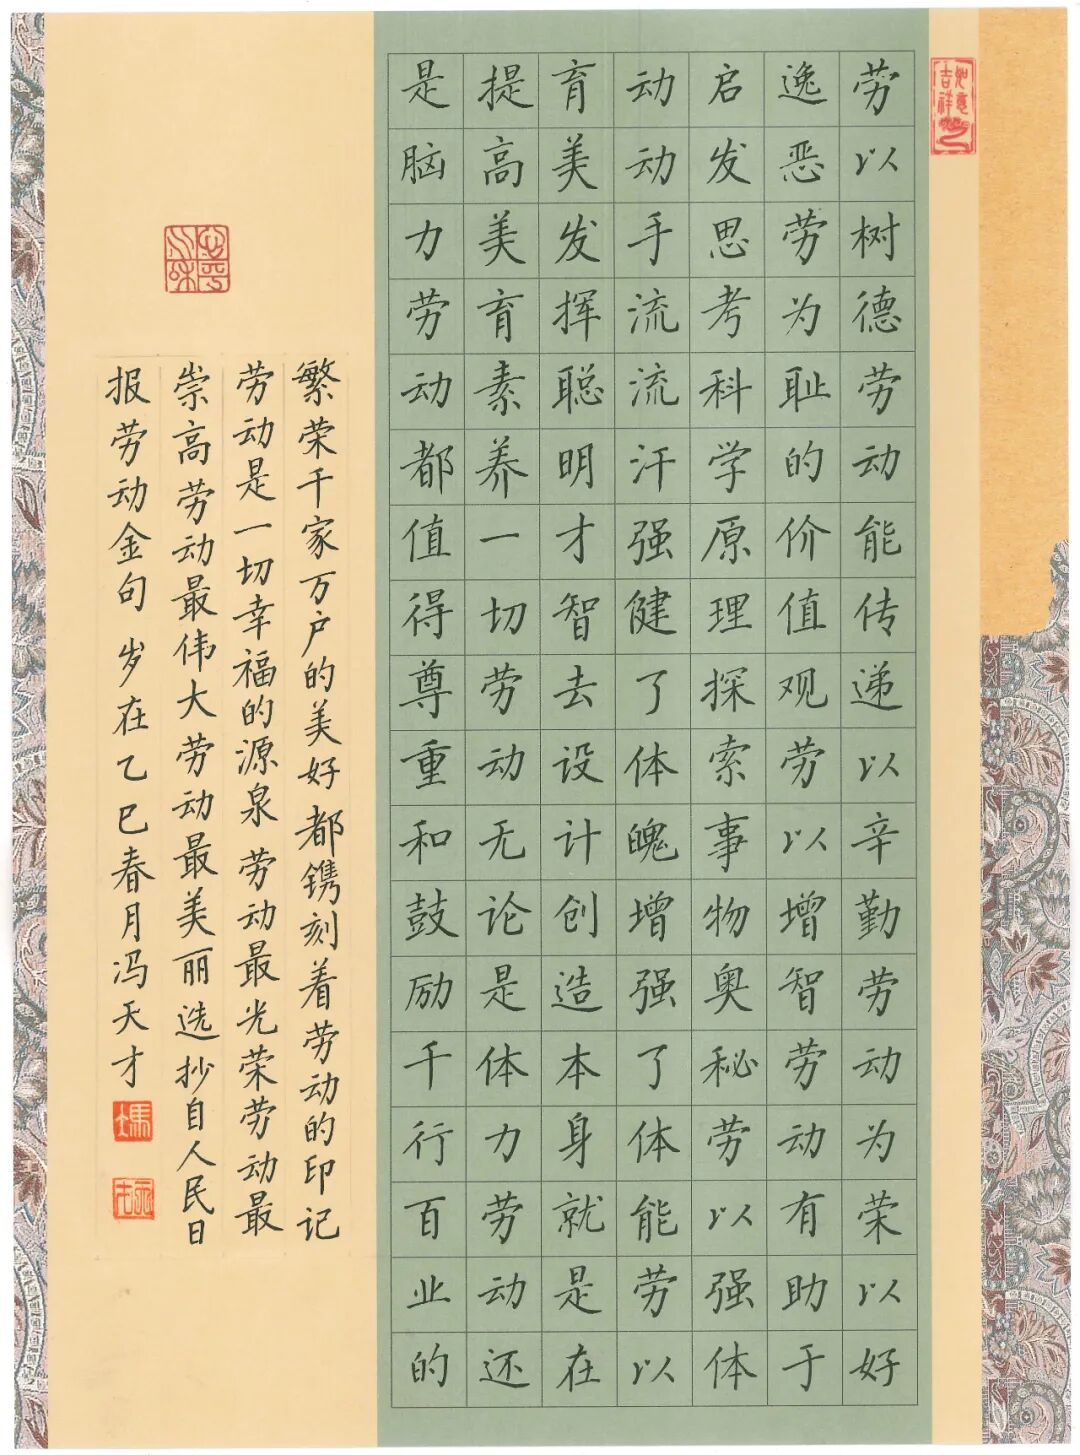 如意吉祥
劳以树德劳动能传递以辛勤劳动为荣以好
逸恶劳为耻的价值观劳以增智劳动有助于
启发思考科学原理探索事物奥秘劳以强体
动动手流流汗强健了体魄增强了体能劳以
育美发挥聪明才智去设计创造本身就是在
提高美育素养一切劳动无论是体力劳动还
是脑力劳动都值得尊重和鼓励千行百业的
繁荣千家万户的美好都镌刻着劳动的印记
劳动是一切幸福的源泉劳动最光荣劳动最
崇高劳动最伟大劳动最美丽选抄自人民日
报劳动金句岁在乙巳春月冯天才